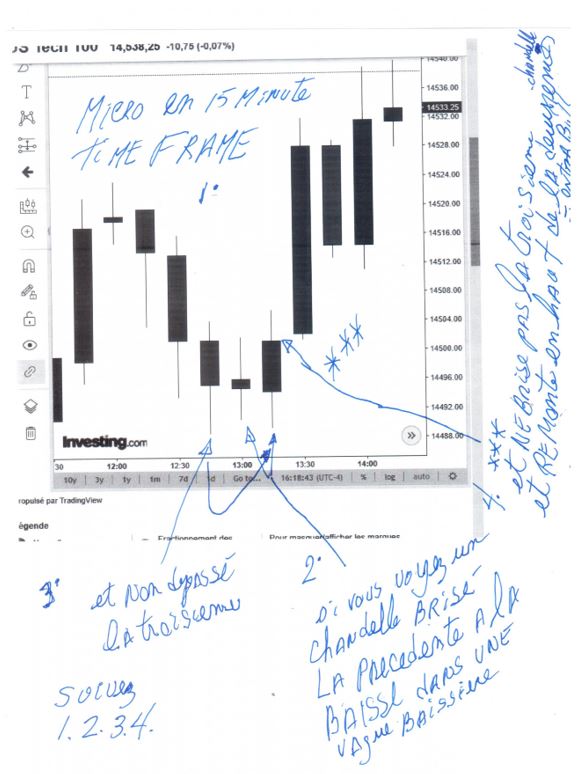 US Tech 100 14,538,25 -10,75 (-0,07%)
MICRO EN 15 MINUTE
TIME FRAME
1.
14540.00
14536.00
14533.25
14532.00
14528.00
14524.00
14520.00
14516.00
14512.00
14508.00
14504.00
14500.00
14496.00
14492.00
14488.00
***
Investing.com
30 12:00 12:30 13:00 13:30 14:00
10y 3y 1y 1m 7d 1d Go to... 16:18:43 (UTC-4) % log auto
ropulsé par TradingView
égende
Fractionnement des
Pour masquer/afficher les marques
4. ***
et NE BRISE PAS la troisieme chandelle
et REMONTE en haut de la deuxieme
3.
et NON dépassé
LA troisieme
2.
si vous voyez un
CHANDELLE BRISÉ
LA PRECEDENTE A la
BAISSE DANS UNE
VAGUE BAISSIÈRE
SUIVEZ
1.2.3.4.